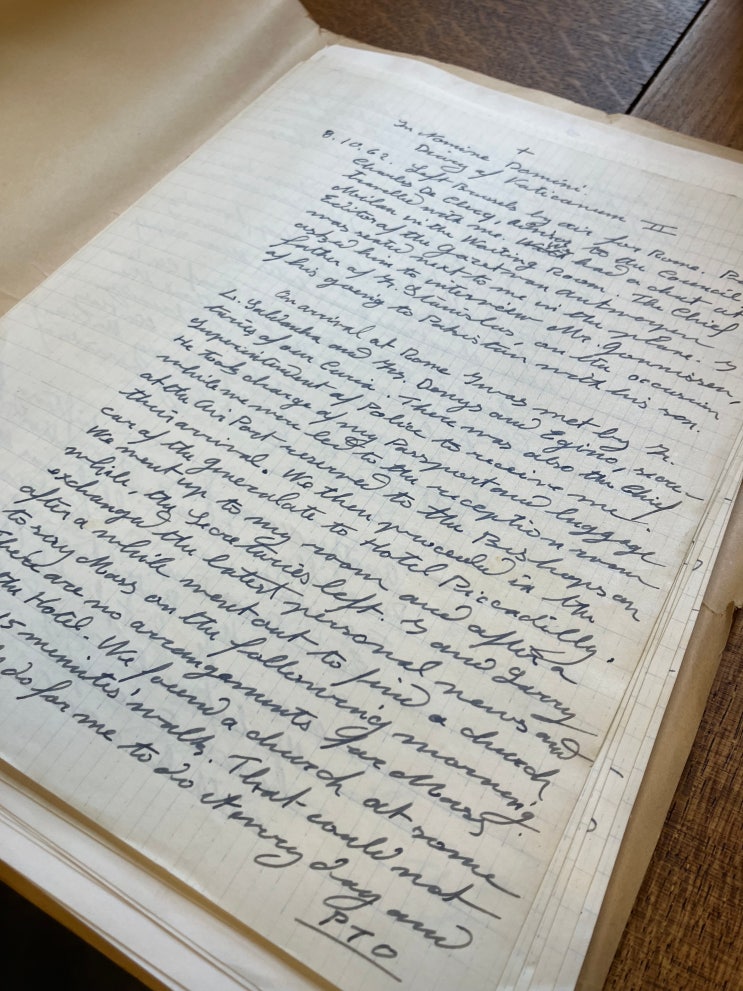 +
In Nomine Domini.
Diary of Vaticanum II
8.10.62. Left Brussels by air for Rome.
Charles De Clercq, to the Council,
Travelled with me. had a chat at
in the Waiting Room. The Chief
Editor of the Gazet van Antwerpen
was seated next to me in the plane. I
asked him to interview Mr.
father of Fr. Stanislas, on the occasion
of his going to Pakistan with his son.
On arrival at Rome I was met by Fr.
L. and Frs. Denys and Egino, secre-
taries of our Curia. There was also the Chief
Superintendent of Police to receive me.
He took charge of my Passport and luggage
while we were led to the reception room
at the Air Port reserved to the Bishops on
their arrival. We then proceeded in the
car of the generalate to Hotel Piccadilly.
We went up to my room and after a
while, the Secretaries left. I and Gerry
exchanged the latest personal news and
after a while went out to find a church
to say Mass on the following morning.
There are no arrangements for Mass
the Hotel. We found a church at some
15 minutes' walk. That could not
do for me to do it every day and
PTO